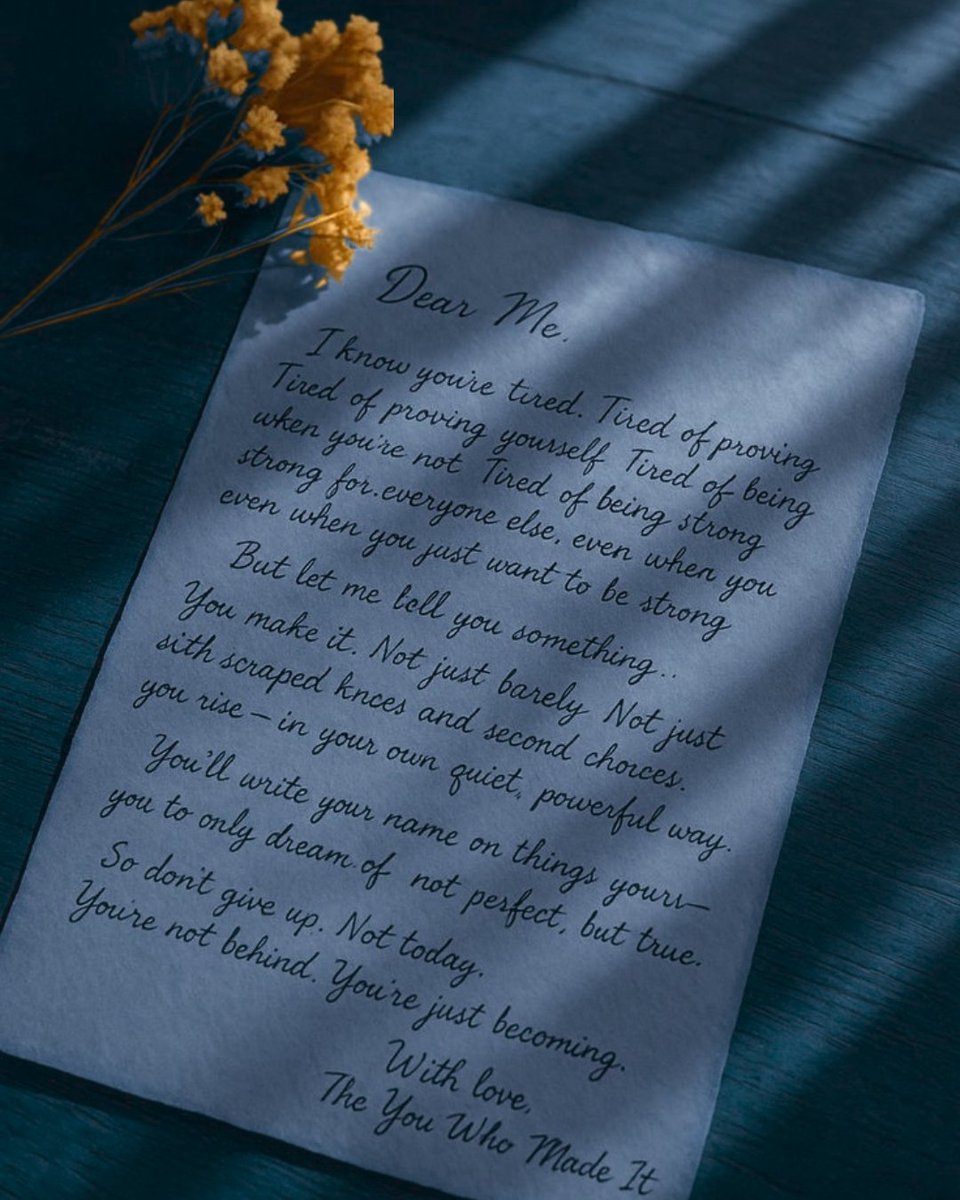 Dear Me.
I know you're tired. Tired of proving
Tired of proving yourself Tired of being
when you're not Tired of being strong
strong for.everyone else, even when you
even when you just want to be strong
But let me tell you something..
You make it. Not just barely Not just
sith scraped knces and second choices.
you rise – in your own quiet, powerful way.
You'll write your name on things yours—
you to only dream of not perfect, but true.
So don't give up. Not today.
You're not behind. You're just becoming.
With love,
The You Who Made It